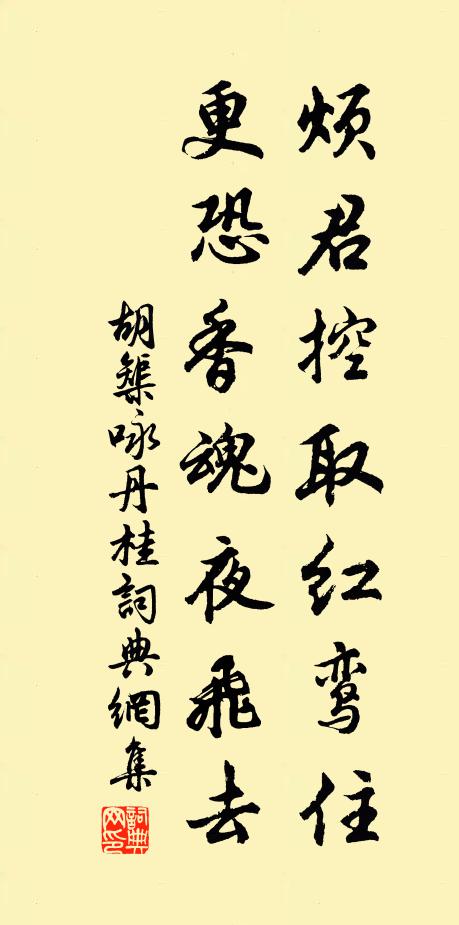 烦君控取红鸾住
更恐香魂夜飛去
胡榘咏丹桂詞典網集
詞典網印